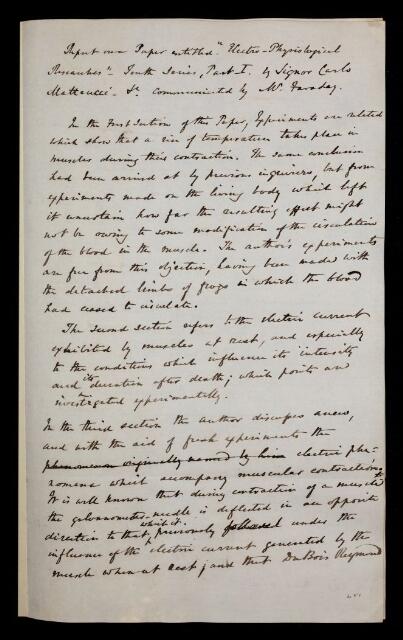 Report on a Paper entitled "Electro-Physiological
Researches" - Tenth Series, Part I. by Signor Carlo
Matteucci - &c communicated by Mr. Faraday.
In the first Section of this Paper, Experiments are related
which show that a rise of temperature takes place in
muscles during their contraction. The same conclusion
had been arrived at by previous inquirers, but from
experiments made on the living body which left
it uncertain how far the resulting effect might
not be owing to some modification of the circulation
of the blood in the muscle. The author's experiments
are free from this objection, having been made with
the detached limbs of frogs in which the blood
had ceased to circulate.
The second section refers to the electric current
exhibited by muscles at rest, and especially
to the conditions which influence its intensity
and its duration after death; which points are
investigated experimentally.
In the third section the author discusses anew,
and with the aid of fresh experiments the
phenomenon originally named by him electric phe-
nomena which accompany muscular contraction.
It is well known that during contraction of a muscle
the galvanometer-needle is deflected in an opposite
direction to that which it previously followed under the
influence of the electric current generated by the
muscle when at rest; and that DuBois Reymond